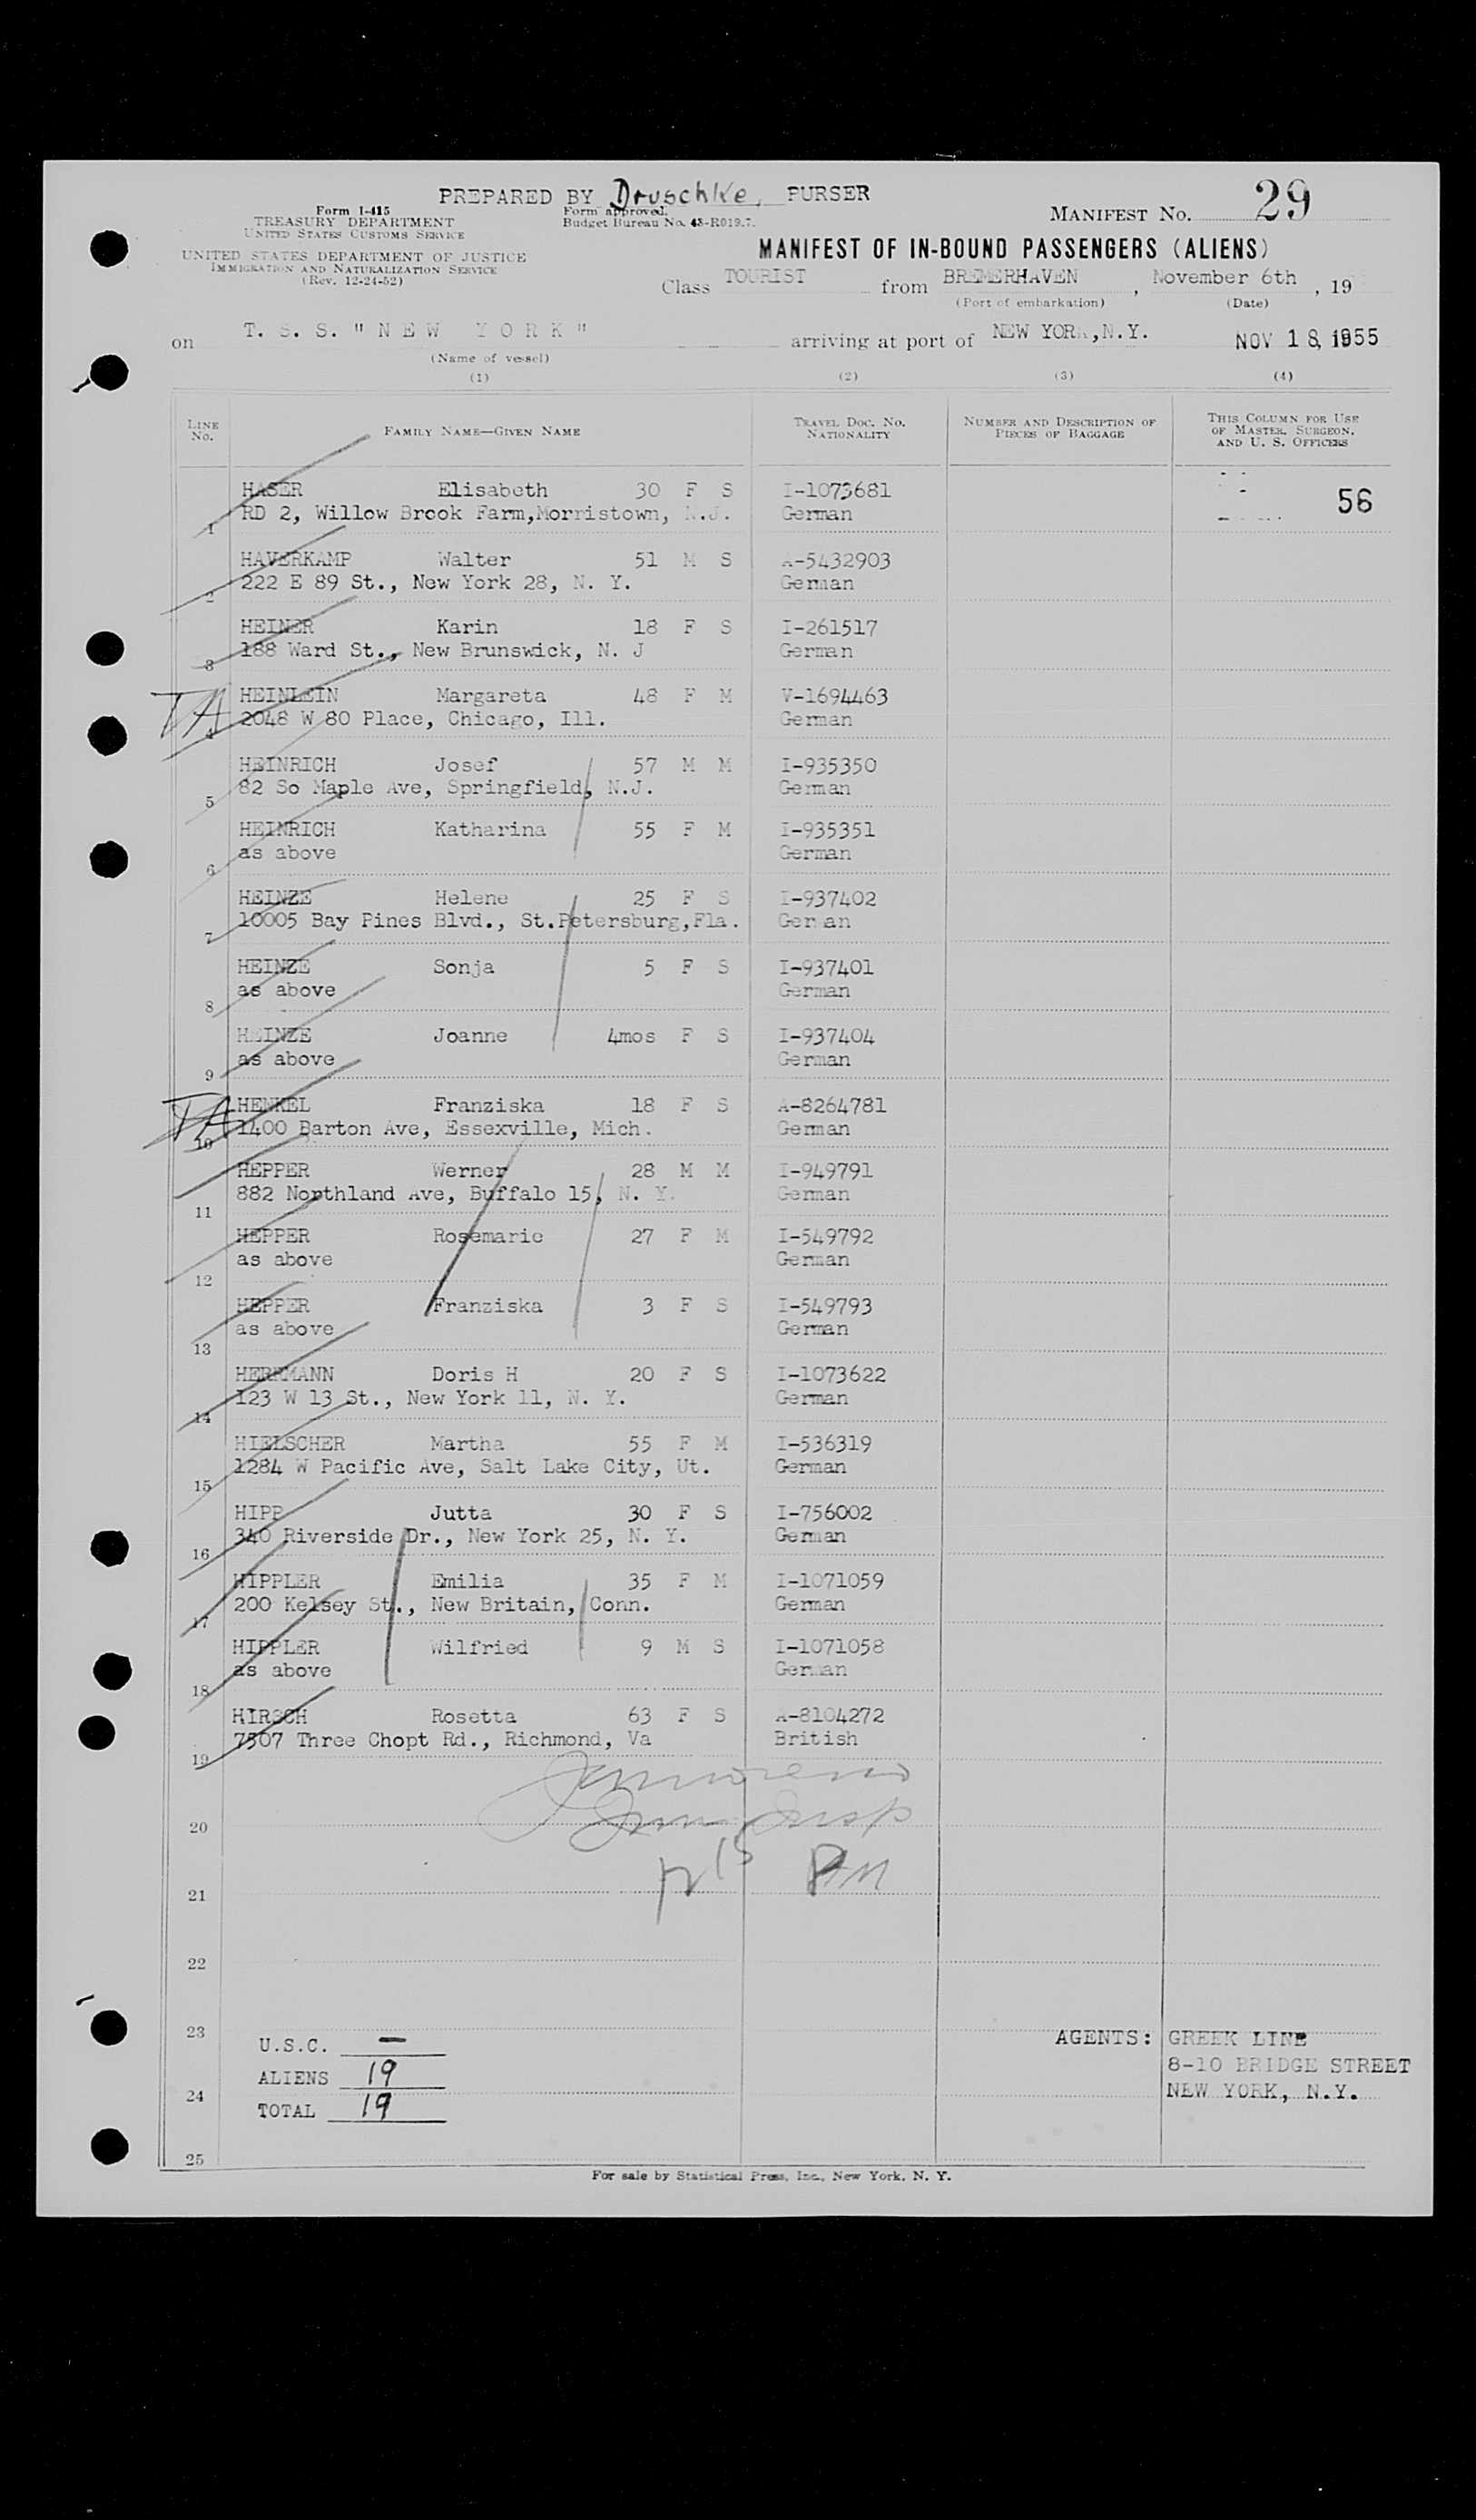 PREPARED BY Druschke, PURSER
Form I-415
TREASURY DEPARTMENT
UNITED STATES CUSTOMS SERVICE
Form approved.
Budget Bureau No. 43-R019.7.
MANIFEST No. 29
UNITED STATES DEPARTMENT OF JUSTICE
IMMIGRATION AND NATURALIZATION SERVICE
(Rev. 12-24-52)
MANIFEST OF IN-BOUND PASSENGERS (ALIENS)
Class TOURIST from BREMERHAVEN, November 6th, 19
(Port of embarkation) (Date)
on T. S. S. "NEW YORK" arriving at port of NEW YORK, N.Y. NOV 18, 1955
(Name of vessel)
(1) (2) (3) (4)
LINE No. FAMILY NAME—GIVEN NAME TRAVEL DOC. NO. NATIONALITY NUMBER AND DESCRIPTION OF PIECES OF BAGGAGE THIS COLUMN FOR USE OF MASTER, SURGEON, AND U. S. OFFICERS
HASER Elisabeth 30 F S I-1073681 56
1 RD 2, Willow Brook Farm, Morristown, N.J. German
HAVERKAMP Walter 51 M S A-5432903
2 222 E 89 St., New York 28, N. Y. German
HEINER Karin 18 F S I-261517
3 188 Ward St., New Brunswick, N. J German
TA HEINLEIN Margareta 48 F M V-1694463
4 2048 W 80 Place, Chicago, Ill. German
HEINRICH Josef 57 M M I-935350
5 82 So Maple Ave, Springfield, N.J. German
HEINRICH Katharina 55 F M I-935351
6 as above German
HEINZE Helene 25 F S I-937402
7 10005 Bay Pines Blvd., St.Petersburg,Fla. German
HEINZE Sonja 5 F S I-937401
8 as above German
HEINZE Joanne 4mos F S I-937404
9 as above German
TA HENKEL Franziska 18 F S A-8264781
10 1400 Barton Ave, Essexville, Mich. German
HEPPER Werner 28 M M I-949791
11 882 Northland Ave, Buffalo 15, N. Y. German
HEPPER Rosemarie 27 F M I-549792
12 as above German
HEPPER Franziska 3 F S I-549793
13 as above German
HERRMANN Doris H 20 F S I-1073622
14 123 W 13 St., New York 11, N. Y. German
HIELSCHER Martha 55 F M I-536319
15 1284 W Pacific Ave, Salt Lake City, Ut. German
HIPP Jutta 30 F S I-756002
16 340 Riverside Dr., New York 25, N. Y. German
HIPPLER Emilia 35 F M I-1071059
17 200 Kelsey St., New Britain, Conn. German
HIPPLER Wilfried 9 M S I-1071058
18 as above German
HIRSCH Rosetta 63 F S A-8104272
19 7507 Three Chopt Rd., Richmond, Va British
20
PM
21
22
23
U.S.C. —
AGENTS: GREEK LINE
ALIENS 19
8-10 BRIDGE STREET
24
TOTAL 19
NEW YORK, N.Y.
25
For sale by Statistical Press, Inc., New York, N. Y.